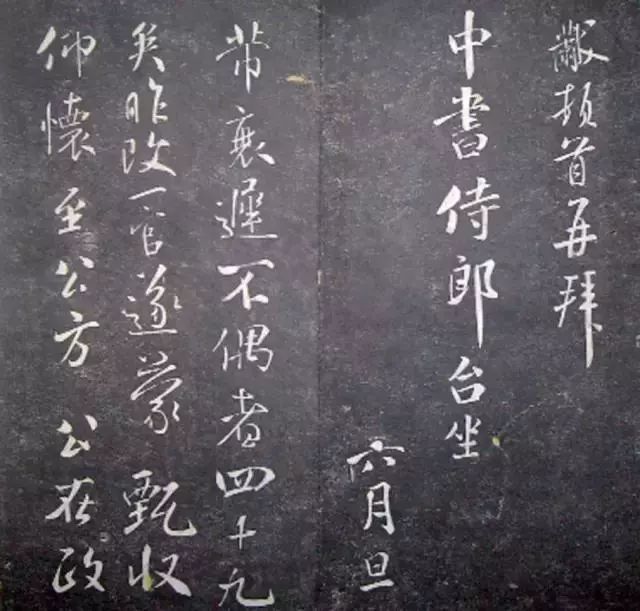 黻頓首再拜
中書侍郎台坐
六月旦
芾衰遲不偶者四十九
矣昨改一官遂蒙 甄收
仰懷至公方 公在政